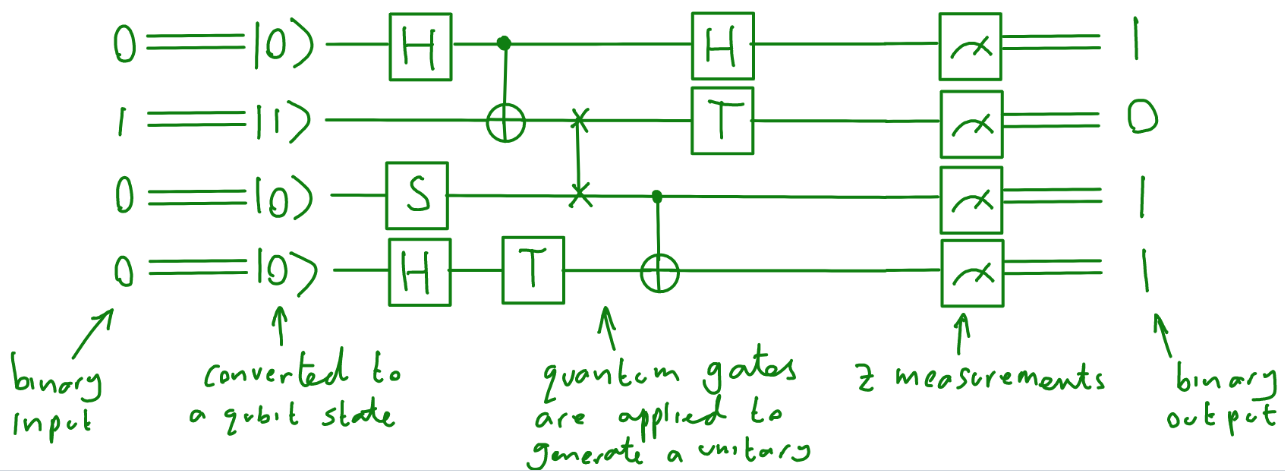 0 |0⟩ H H 1
1 |1⟩ T 0
0 |0⟩ S 1
0 |0⟩ H T 1
binary input
converted to
a qubit state
quantum gates
are applied to
generate a unitary
Z measurements
binary
output